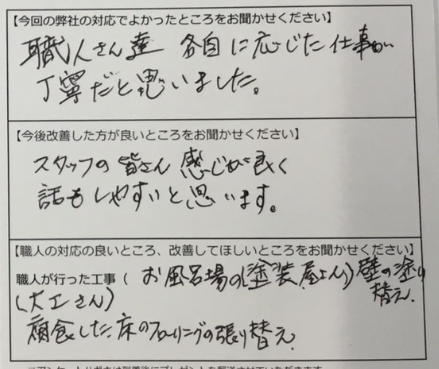 【今回の弊社の対応でよかったところをお聞かせください】
職人さん達 各自に応じた仕事が
丁寧だと思いました。
【今後改善した方が良いところをお聞かせください】
スタッフの皆さん 感じが良く
話もしやすいと思います。
【職人の対応の良いところ、改善してほしいところをお聞かせください】
職人が行った工事（ お風呂場の(塗装屋さん)壁の塗り
替え.
(大工さん)
腐食した床のフローリングの張り替え.